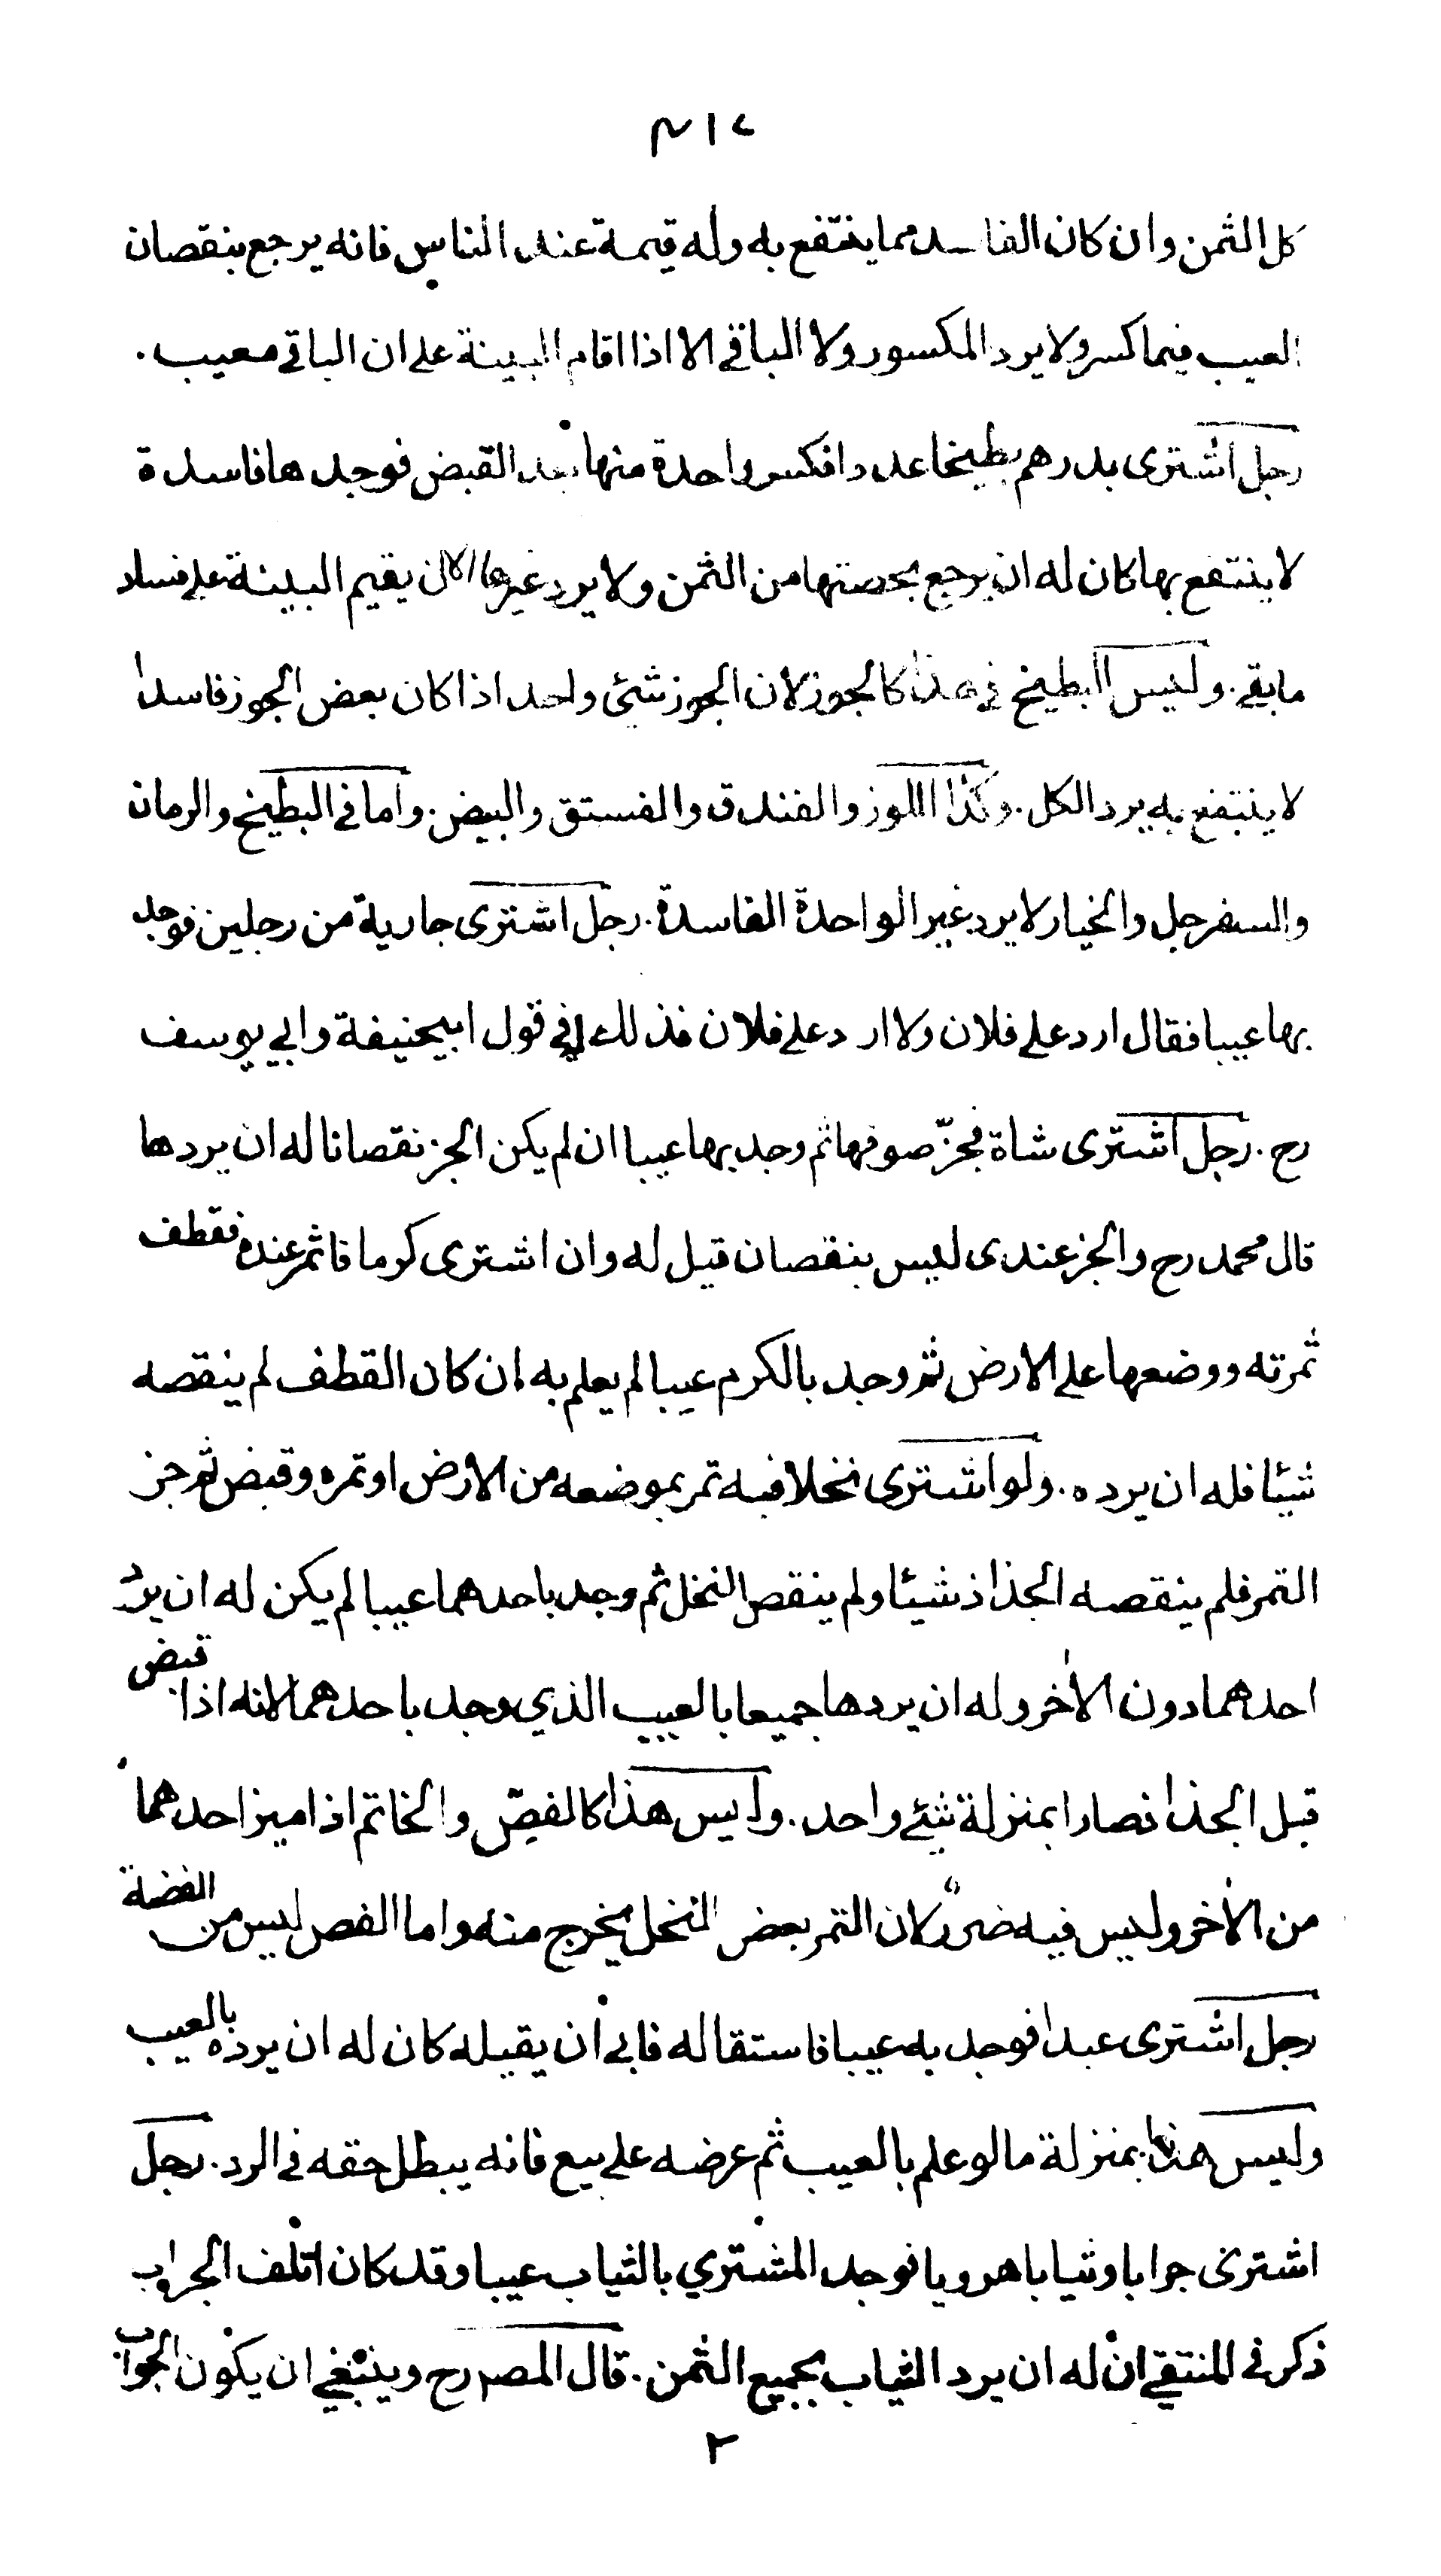 كل الثمن وان كان الفاسد مما ينتفع به وله قيمة عند الناس فانه يرجع بنقصان
العيب فيما كسر ولا يرد المكسور ولا الباقي الا اذا اقام البينة على ان الباقي معيب .
رجل اشترى بدرهم بطيخا عددا فكسر واحدة منها بعد القبض فوجدها فاسدة
لا ينتفع بها كان له ان يرجع بحصتها من الثمن ولا يرد غيرها الا ان يقيم البينة على فساد
ما بقي . وليس البطيخ في هذا كالجوز لان الجوز شئ واحد اذا كان بعض الجوز فاسدا
لا ينتفع به يرد الكل . وكذا اللوز والفندق والفستق والبيض . واما في البطيخ والرمان
والسفرجل والخيار لا يرد غير الواحدة الفاسدة . رجل اشترى جارية من رجلين فوجد
بها عيبا فقال ارد على فلان ولا ارد على فلان فذلك له في قول ابيحنيفة وابي يوسف
رح . رجل اشترى شاة فجزّ صوفها ثم وجد بها عيبا ان لم يكن الجز نقصانا له ان يردها
قال محمد رح والجز عندى ليس بنقصان قيل له وان اشترى كرما فاثمر عنده فقطف
ثمرته ووضعها على الارض ثم وجد بالكرم عيبا لم يعلم به ان كان القطف لم ينقصه
شيئا فله ان يرده . ولو اشترى نخلا فيه تمر بموضعه من الارض او تمره وقبض ثم جز
التمر فلم ينقصه الجذاذ شيئا ولم ينقص النخل ثم وجد باحدهما عيبا لم يكن له ان يرد
احدهما دون الأخر وله ان يردها جميعا بالعيب الذي وجد باحدهما لانه اذا قبض
قبل الجذاذ صارا بمنزلة شئ واحد . وليس هذا كالفصّ والخاتم اذا ميز احدهما
من الأخر وليس فيه ضرر لان التمر بعض النخل يخرج منه واما الفص ليس من الفضة
رجل اشترى عبدا فوجد به عيبا فاستقاله فابى أن يقيله كان له ان يرده بالعيب
وليس هذا بمنزلة ما لو علم بالعيب ثم عرضه على بيع فانه يبطل حقه في الرد . رجل
اشترى جرابا وثيابا هرويا فوجد المشتري بالثياب عيبا وقد كان اتلف الجراب
ذكر في المنتقى ان له ان يرد الثياب بجميع الثمن . قال المصر رح وينبغي ان يكون الجواب
٢